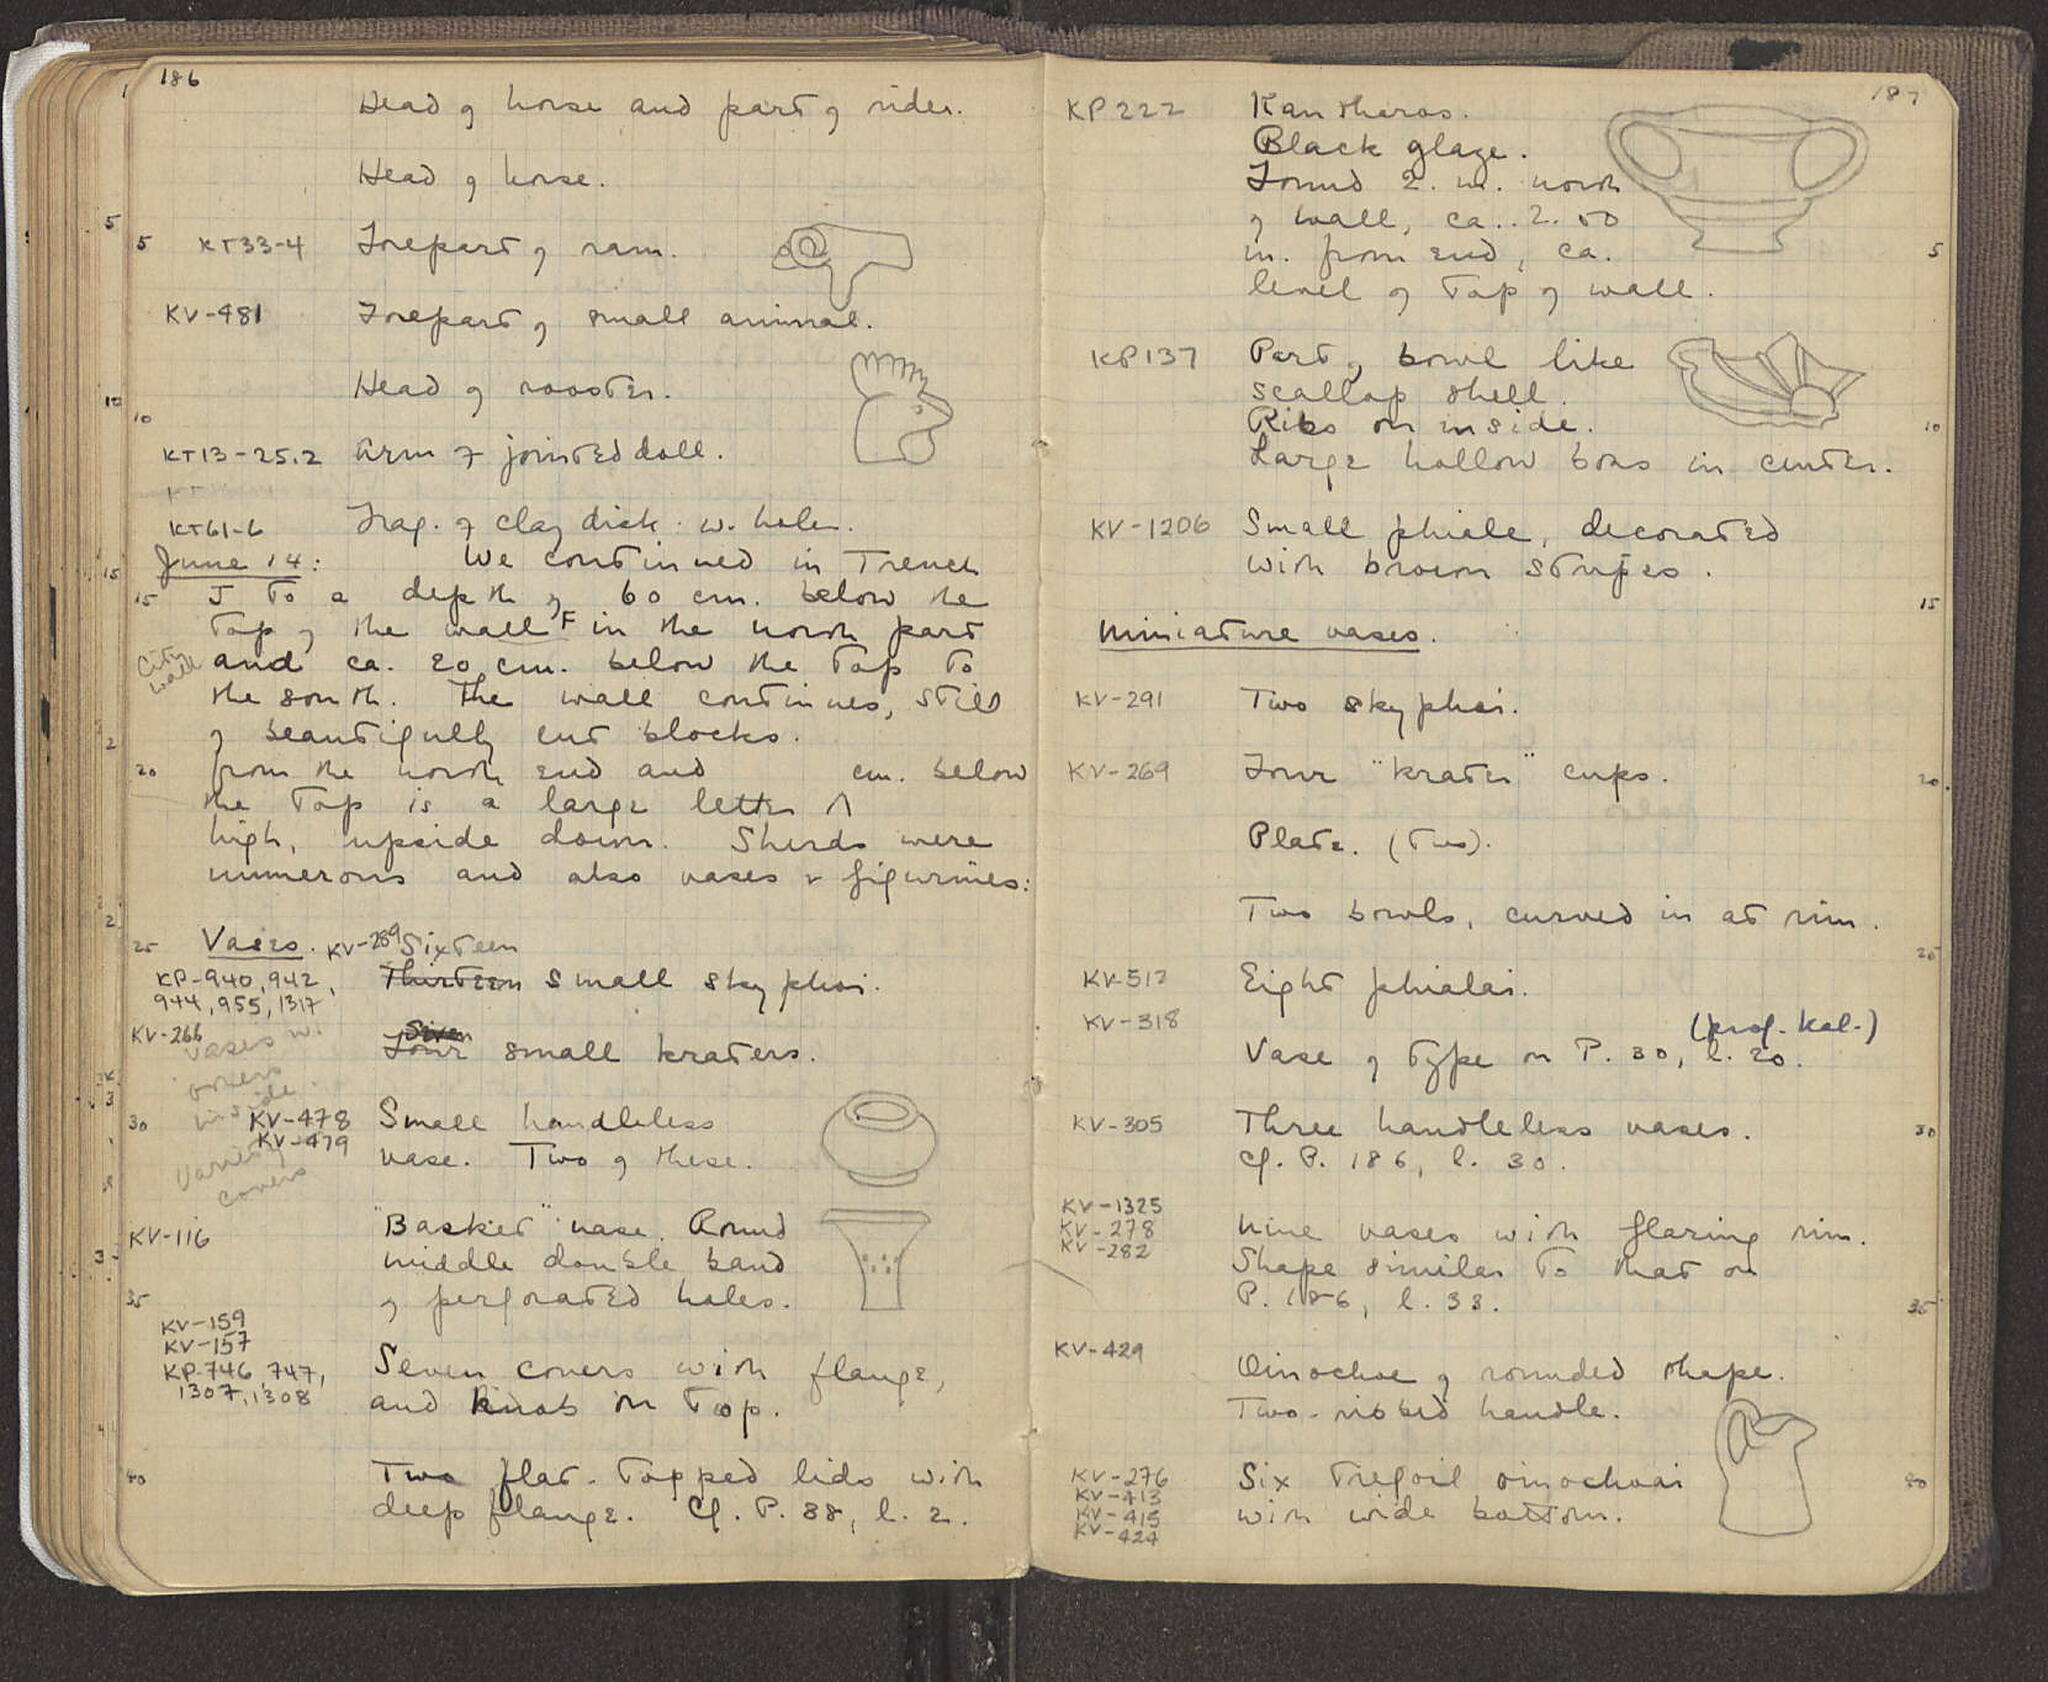 186
Head of horse and part of rider.
Head of horse.
5 KT33-4 Forepart of ram.
KV-481 Forepart of small animal.
Head of rooster.
10
KT13-25.2 Arm of jointed doll.
KT61-6 Frag. of clay disk w. holes.
June 14: We continued in Trench
15 J to a depth of 60 cm. below the
top of the wall F in the north part
City wall
and ca. 20 cm. below the top to
the south. The wall continues, still
of beautifully cut blocks.
20 from the north end and cm. below
the top is a large letter Λ
high, upside down. Sherds were
numerous and also vases & figurines:
25 Vases. KV-289 Sixteen
KP-940, 942, Thirteen small skyphoi.
944, 955, 1317
KV-266 Seven
Four small kraters.
vases w.
others
inside.
30 KV-478 Small handleless
KV-479 vase. Two of these.
covers
KV-116 "Basket" vase. Around
middle double band
35 of perforated holes.
KV-159
KV-157
KP-746, 747, Seven covers with flange,
1307, 1308 and knob on top.
40 Two flat-topped lids with
deep flange. Cf. P. 88, l. 2.
187
KP222 Kantharos.
Black glaze.
Found 2. m. north
of wall, ca. 2.50
m. from end, ca. 5
level of top of wall.
KP137 Part of bowl like
scallop shell.
Ribs on inside. 10
Large hollow boss in center.
KV-1206 Small phiale, decorated
with brown stripes.
15
Miniature vases.
KV-291 Two skyphoi.
KV-269 Four "krater" cups. 20
Plate. (Two).
Two bowls, curved in at rim.
25
KV-517 Eight phialai.
KV-318 (prof. Kal.)
Vase of type on P. 30, l. 20.
KV-305 Three handleless vases. 30
Cf. P. 186, l. 30.
KV-1325
KV-278 Nine vases with flaring rim.
KV-282 Shape similar to that on
P. 186, l. 33. 35
KV-429 Oinochoe of rounded shape.
Two-ribbed handle.
KV-276 Six trefoil oinochoai 40
KV-413
KV-415 with wide bottom.
KV-424